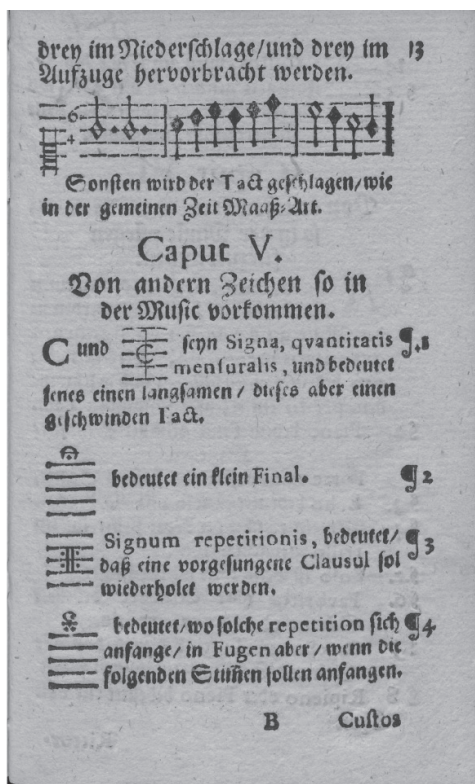 drey im Niederschlage/und drey im 13
Aufzuge hervorbracht werden.
6
4
Sonsten wird der Tact geschlagen/wie
in der gemeinen Zeit Maaß-Art.
Caput V.
Von andern Zeichen so in
der Music vorkommen.
C und seyn Signa, qvantitatis ¶.1
mensuralis, und bedeutet
jenes einen langsamen / dieses aber einen
geschwinden Tact.
bedeutet ein klein Final. ¶ 2
Signum repetitionis, bedeutet/ ¶ 3
daß eine vorgesungene Clausul sol
wiederholet werden.
bedeutet/wo solche repetition sich ¶ 4
anfange/in Fugen aber/wenn die
folgenden Stim̃en sollen anfangen.
B Custos